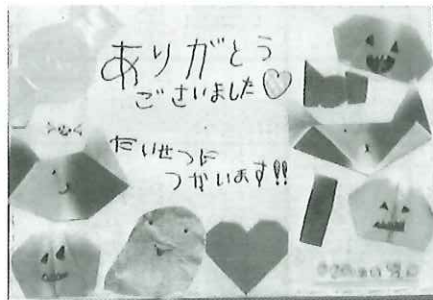 ありがとう
ございました♡
たいせつに
つかいます!!